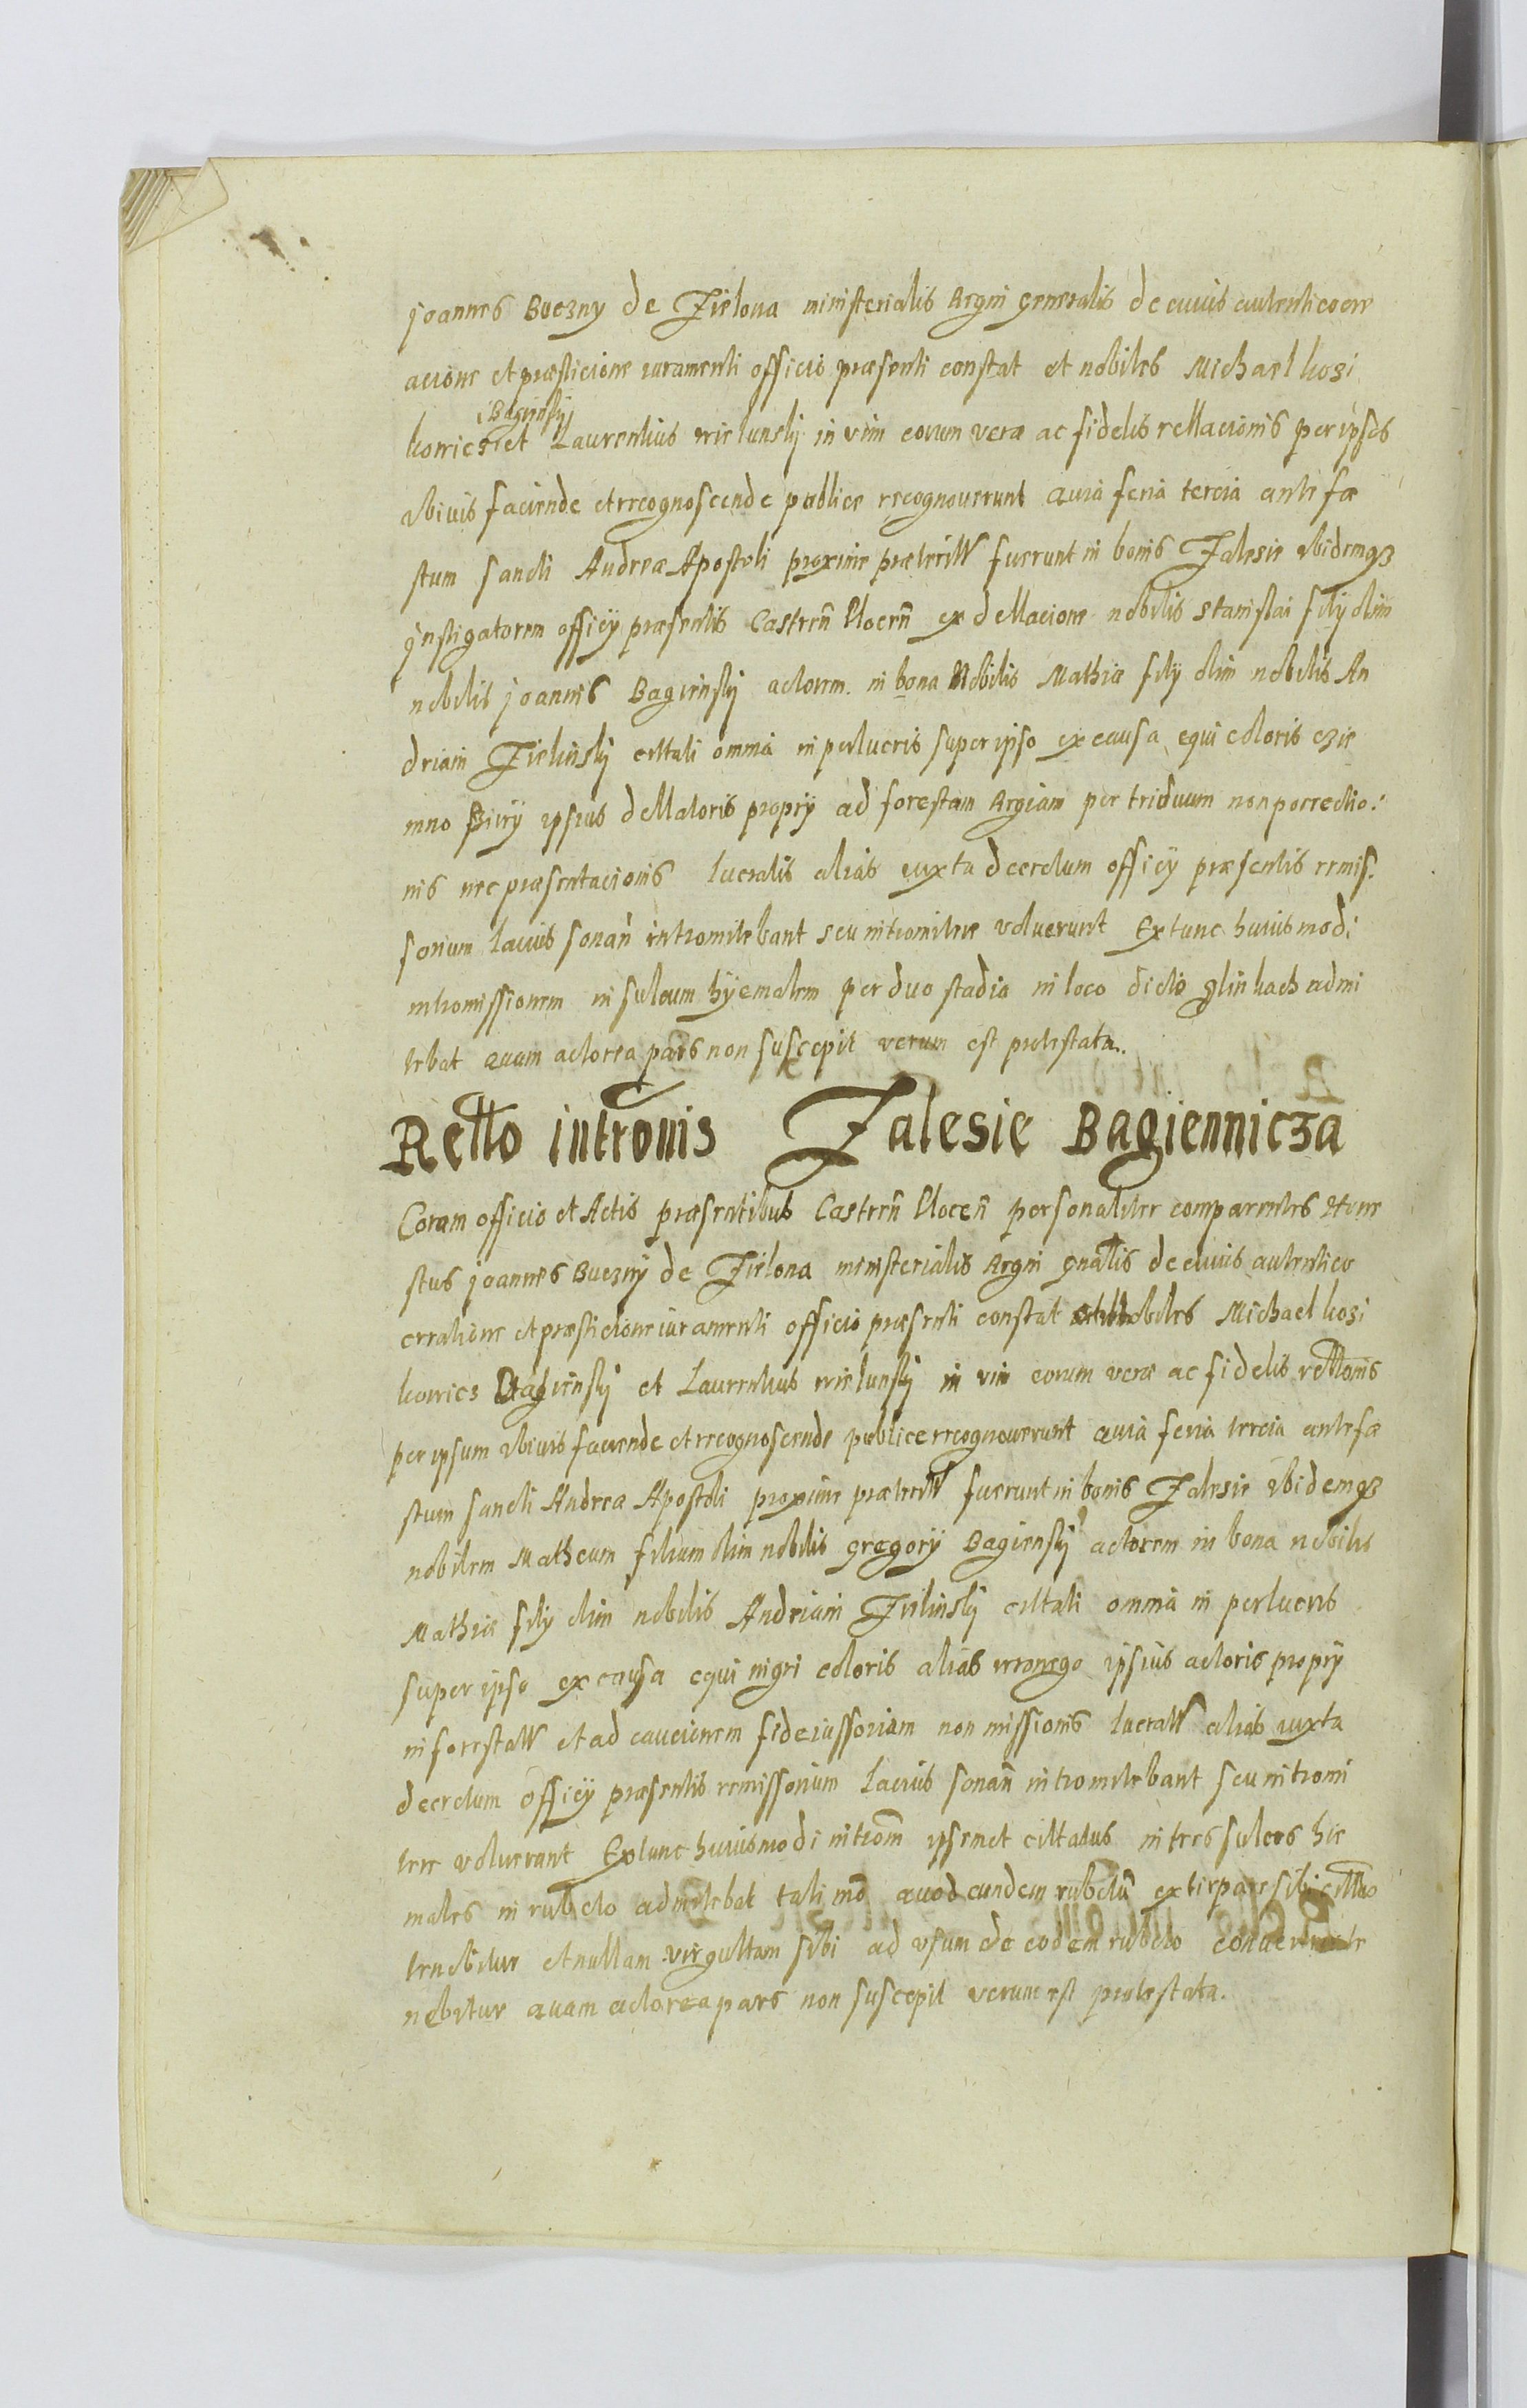 joannes Buczny de Zielona ministerialis Regni generalis de cuius autenticoerr
acione et præsticione iuramenti officio præsenti constat et nobiles Michael kosi
Bagiensky
kowicz et Laurentius wielunsky in vim eorum veræ ac fidelis rellacionis per ipsos
vbiuis faciende et recognoscende publice recognouerunt quia feria tercia ante fæ
stum sancti Andreæ Apostoli proxime præteritt fuerunt in bonis Zalesie ibidemqz
jnstigatorem officy præsentis Castren Plocen ex dellacione nobilis Stanislai fily olim
nobilis joannis Bagiensky actorem in bona Nobilis Mathiæ fily olim nobilis An
driani Zielinsky cittati omnia in perlucris super ipso ex causa equi coloris czie
mno ipsius dellatoris propry ad forestam Regiam per triduum non porrectio
nis nec præsentacionis lucratis alias iuxta decretum officy præsentis remis
sorium lacius sonan intromitebant seu intromitere voluerunt Ex tunc huiusmodi
intromissionem in sulcum hyemalem per duo stadia in loco dicto glinkach admi
tebat quam actorea pars non suscepit verum est protestata.
Retto intronis Zalesie Bagiennicza
Coram officio et Actis præsentibus Castren Plocen personaliter comparentes Hone
stus joannes Buczny de Zielona ministerialis Regni gnalis de cuius autentico
erratione et præsticione iuramenti officio præsenti constat et nobiles Michael kosi
kowicz Bagiensky et Laurentius wielunsky in vim eorum veræ ac fidelis rettonis
per ipsum vbiuis faciende et recognoscende publice recognouerunt quia feria tercia ante fæ
stum sancti Andreæ Apostoli proxime præteritt fuerunt in bonis Zalesie ibidemqz
nobilem Matheum filium olim nobilis gregory Bagiensky actorem in bona nobilis
Mathiæ fily olim nobilis Andriani Zielinsky cittati omnia in perlucris
super ipso ex causa equi nigri coloris alias wronego ipsius actoris propry
in forestatt et ad caucionem fideiussoriam non missionis lucratt alias iuxta
decretum officy præsentis remissorium lacius sonan intromitebant seu intromi
tere voluerant Ex tunc huiusmodi introm ipsemet cittatus in tres sulcos hie
males in rubeto admitebat tali mo quod eundem rubetu extirpare sibi
tenebitur et nullam virgultam sibi ad vsum de eodem rubeto conuertere te
nebitur quam actorea pars non suscepit verum est protestata.